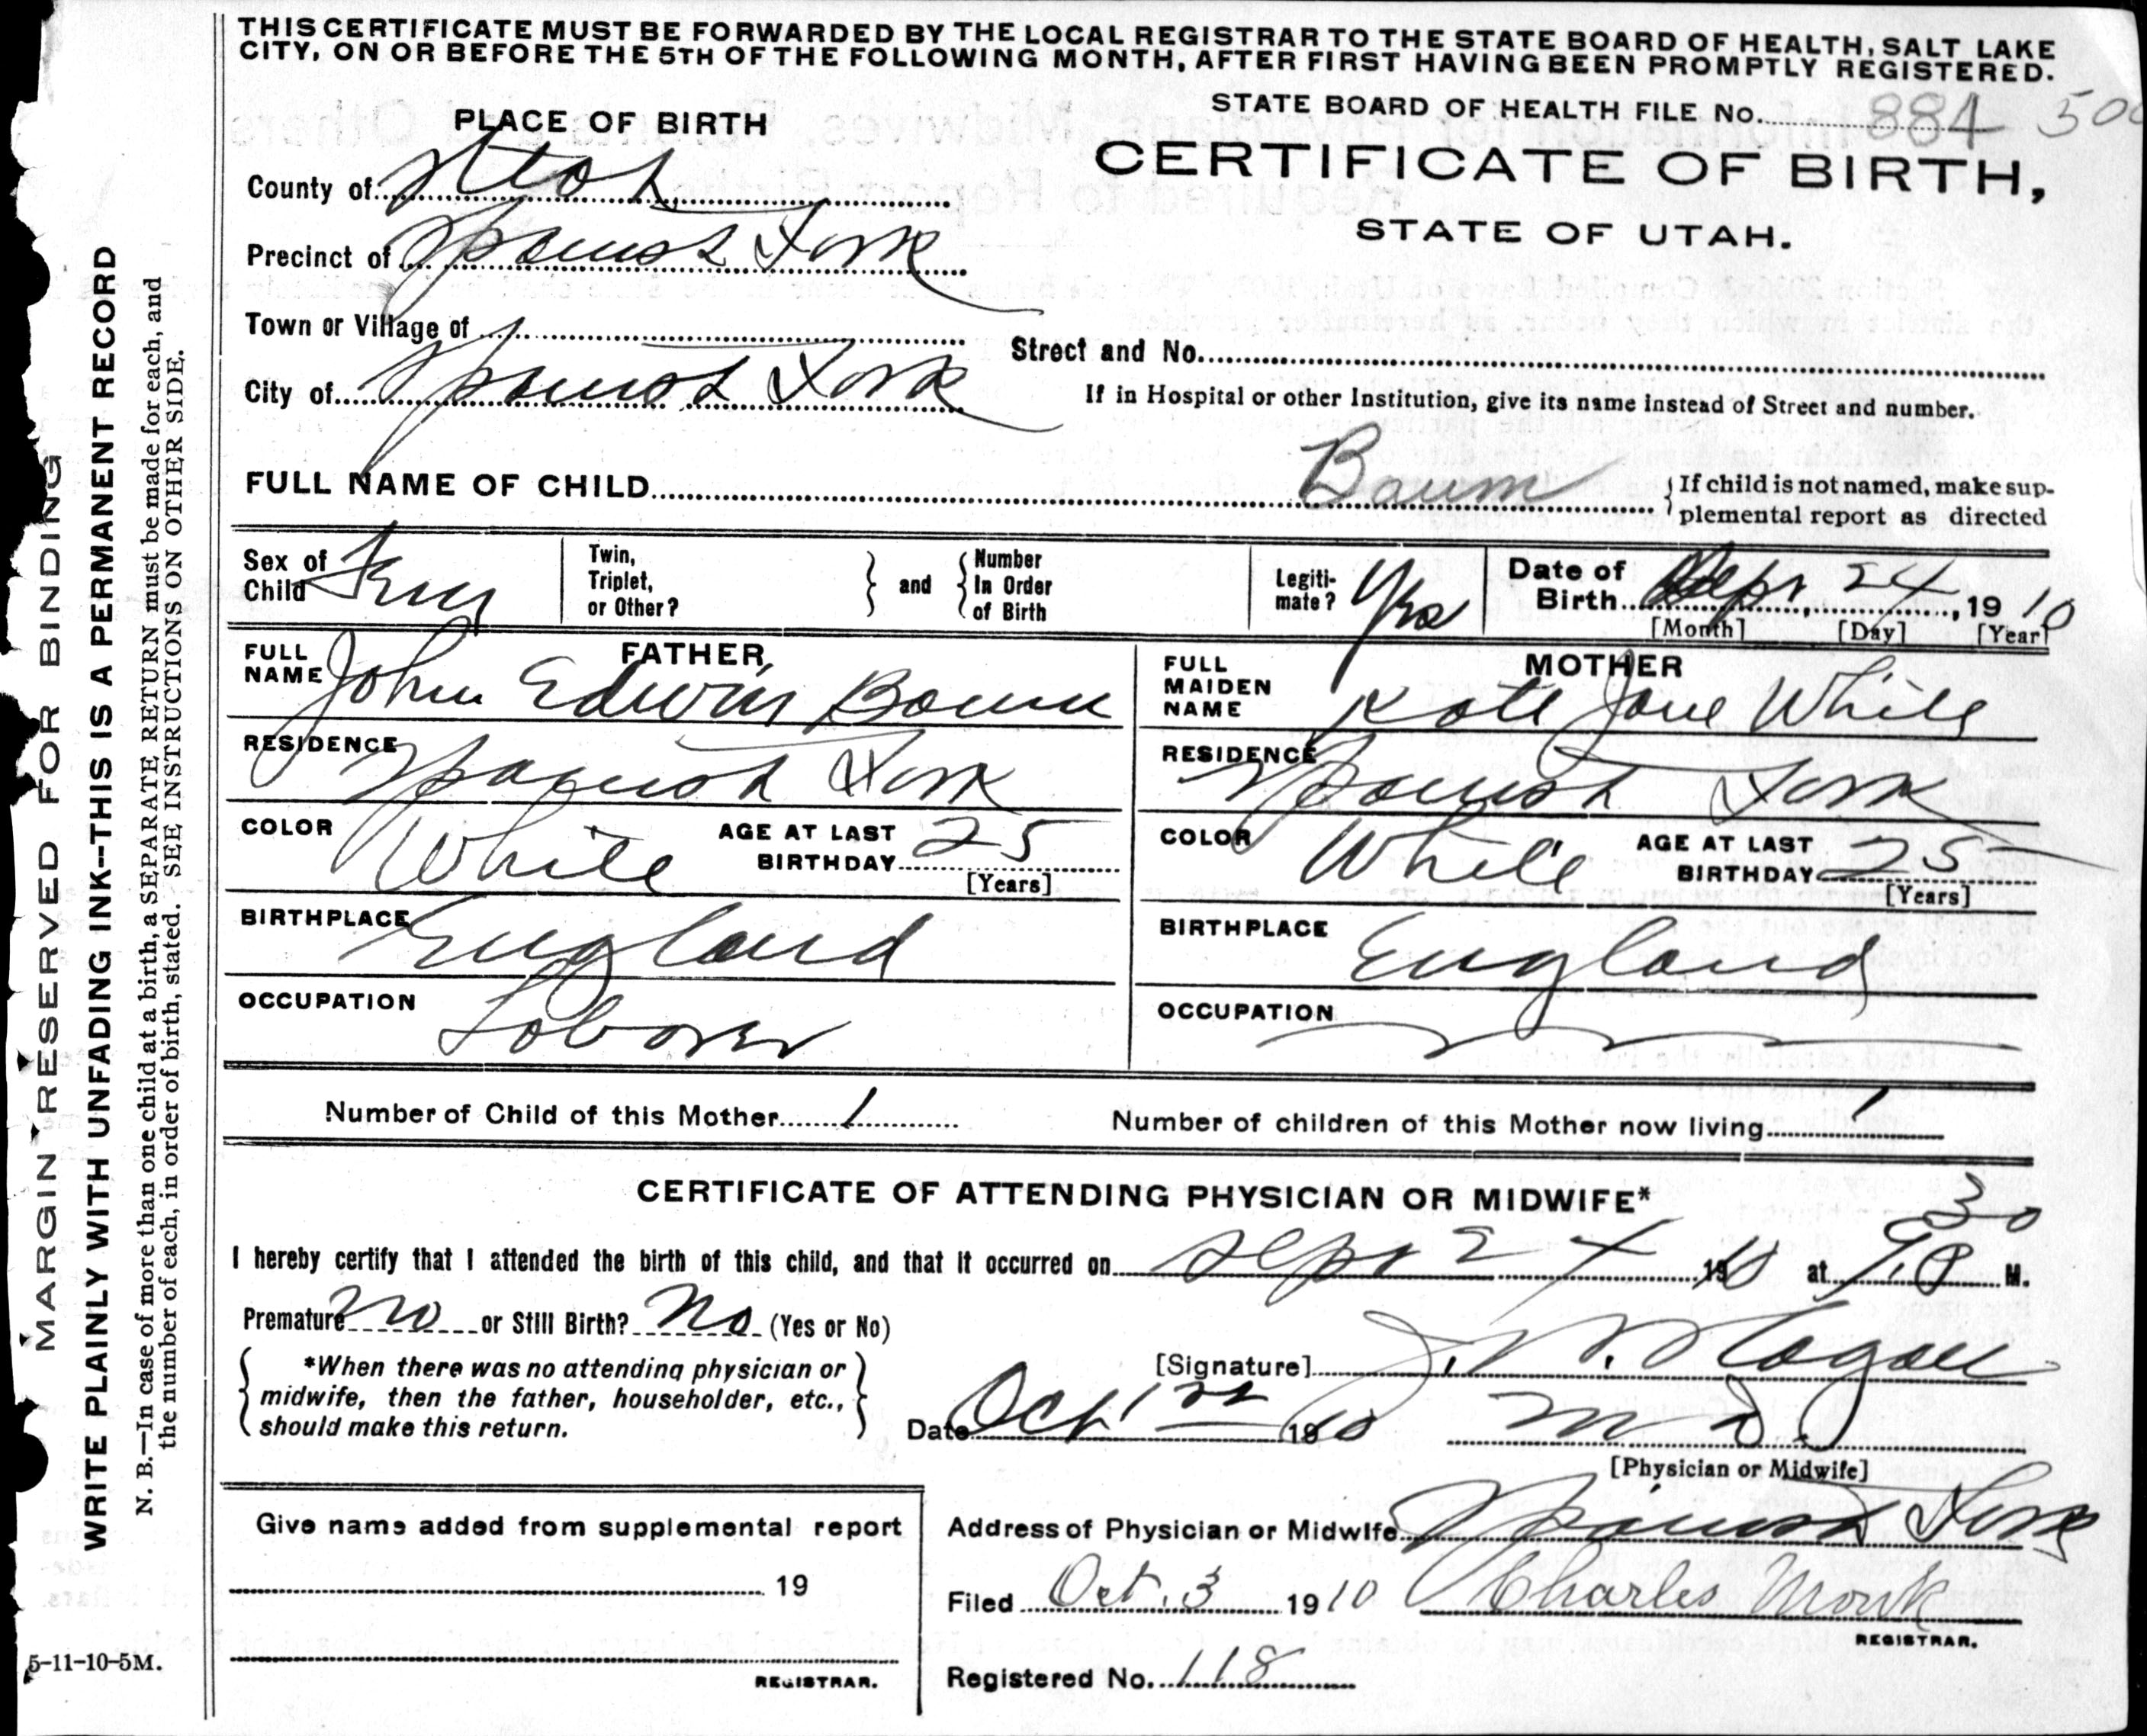 THIS CERTIFICATE MUST BE FORWARDED BY THE LOCAL REGISTRAR TO THE STATE BOARD OF HEALTH, SALT LAKE
CITY, ON OR BEFORE THE 5TH OF THE FOLLOWING MONTH, AFTER FIRST HAVING BEEN PROMPTLY REGISTERED.
STATE BOARD OF HEALTH FILE No. 884 500
PLACE OF BIRTH
CERTIFICATE OF BIRTH,
STATE OF UTAH.
County of Utah
Precinct of Spanish Fork
Town or Village of
Street and No.
City of Spanish Fork
If in Hospital or other Institution, give its name instead of Street and number.
FULL NAME OF CHILD Baum
If child is not named, make sup-
plemental report as directed
Sex of Child Fem
Twin, Triplet, or Other?
and
Number In Order of Birth
Legiti-mate? Yes
Date of Birth Sept 24, 1910
[Month] [Day] [Year]
FATHER
FULL NAME John Edwin Baum
RESIDENCE Spanish Fork
COLOR White AGE AT LAST BIRTHDAY 25
[Years]
BIRTHPLACE England
OCCUPATION Laborer
MOTHER
FULL MAIDEN NAME Kate Jane White
RESIDENCE Spanish Fork
COLOR White AGE AT LAST BIRTHDAY 25
[Years]
BIRTHPLACE England
OCCUPATION
Number of Child of this Mother 1
Number of children of this Mother now living 1
CERTIFICATE OF ATTENDING PHYSICIAN OR MIDWIFE*
I hereby certify that I attended the birth of this child, and that it occurred on Sept 24 1910 at 9.30 P M.
Premature no or Still Birth? No (Yes or No)
*When there was no attending physician or
midwife, then the father, householder, etc.,
should make this return.
[Signature]
Date Oct 1 1910
M D.
[Physician or Midwife]
Give name added from supplemental report
19
REGISTRAR.
Address of Physician or Midwife Spanish Fork
Filed Oct. 3 1910 Charles Monk
REGISTRAR.
Registered No. 118
MARGIN RESERVED FOR BINDING
WRITE PLAINLY WITH UNFADING INK--THIS IS A PERMANENT RECORD
N. B.—In case of more than one child at a birth, a SEPARATE RETURN must be made for each, and
the number of each, in order of birth, stated. SEE INSTRUCTIONS ON OTHER SIDE.
5-11-10-5M.